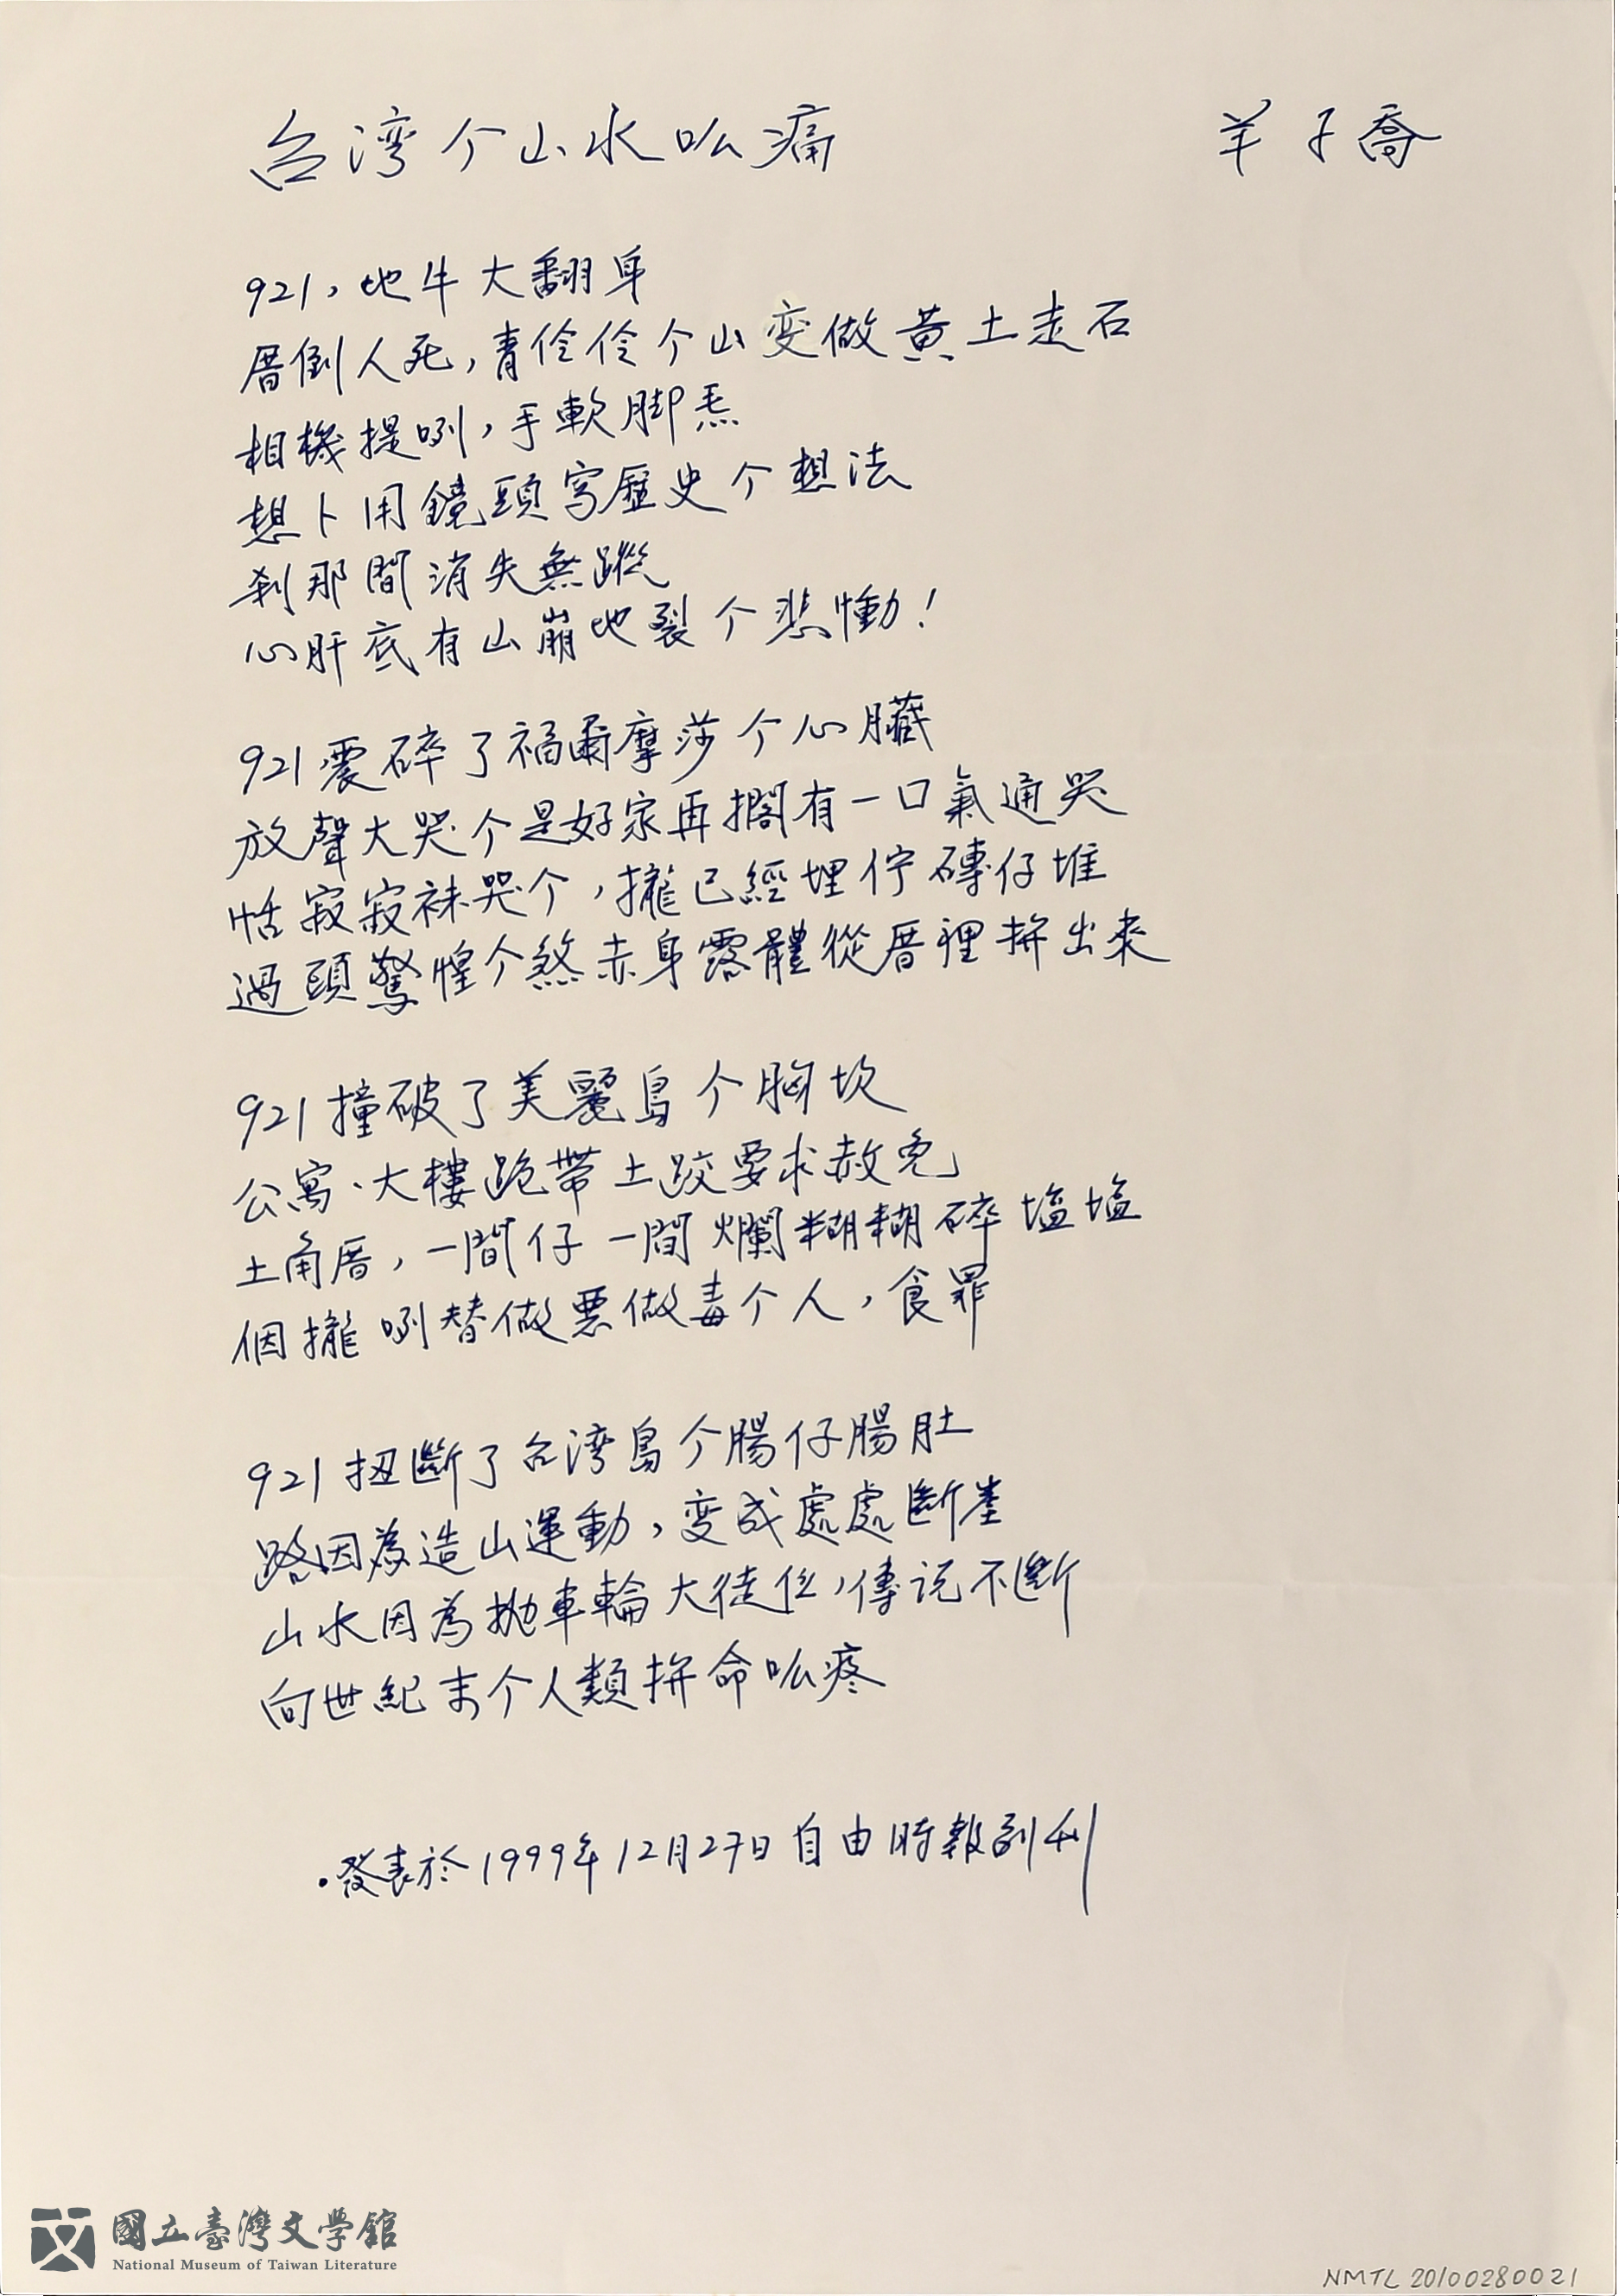 台湾个山水呱痛
羊子喬
921，地牛大翻身
厝倒人死，青伶伶个山变做黄土走石
相機提咧，手軟脚
想卜用鏡頭写歷史个想法
刹那間消失無蹤
心肝底有山崩地裂个悲慟！
921震碎了福爾摩莎个心臟
放聲大哭个是好家再擱有一口氣通哭
恬寂寂袜哭个，攏已經埋佇磚仔堆
過頭驚惶个煞赤身露體從厝裡拚出來
921撞破了美麗島个胸坎
公寓、大樓跪帶土跤要求赦免
土角厝，一間仔一間爛糊糊碎塩塩
個攏咧替做惡做毒个人，食罪
921扭斷了台湾島个腸仔腸肚
路因為造山運動，变成處處斷崖
山水因為拋車輪大徒位，傳説不斷
向世紀末个人類拚命呱疼
·發表於1999年12月27日自由時報副刊
國立臺灣文學館
National Museum of Taiwan Literature
NMTL 20100280021